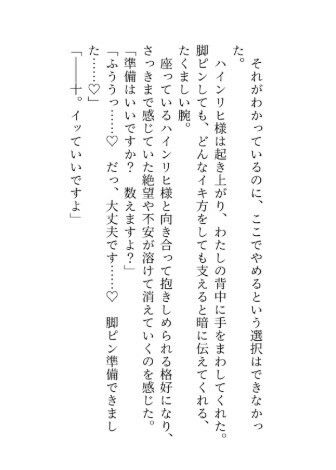 それがわかっているのに、ここでやめるという選択はできなかっ
た。
　ハインリヒ様は起き上がり、わたしの背中に手をまわしてくれた。
脚ピンしても、どんなイキ方をしても支えると暗に伝えてくれる、
たくましい腕。
　座っているハインリヒ様と向き合って抱きしめられる格好になり、
さっきまで感じていた絶望や不安が溶けて消えていくのを感じた。
「準備はいいですか？　数えますよ？」
「ふううっ……♡　だっ、大丈夫です……♡　脚ピン準備できまし
た……♡」
「――十。イッていいですよ」